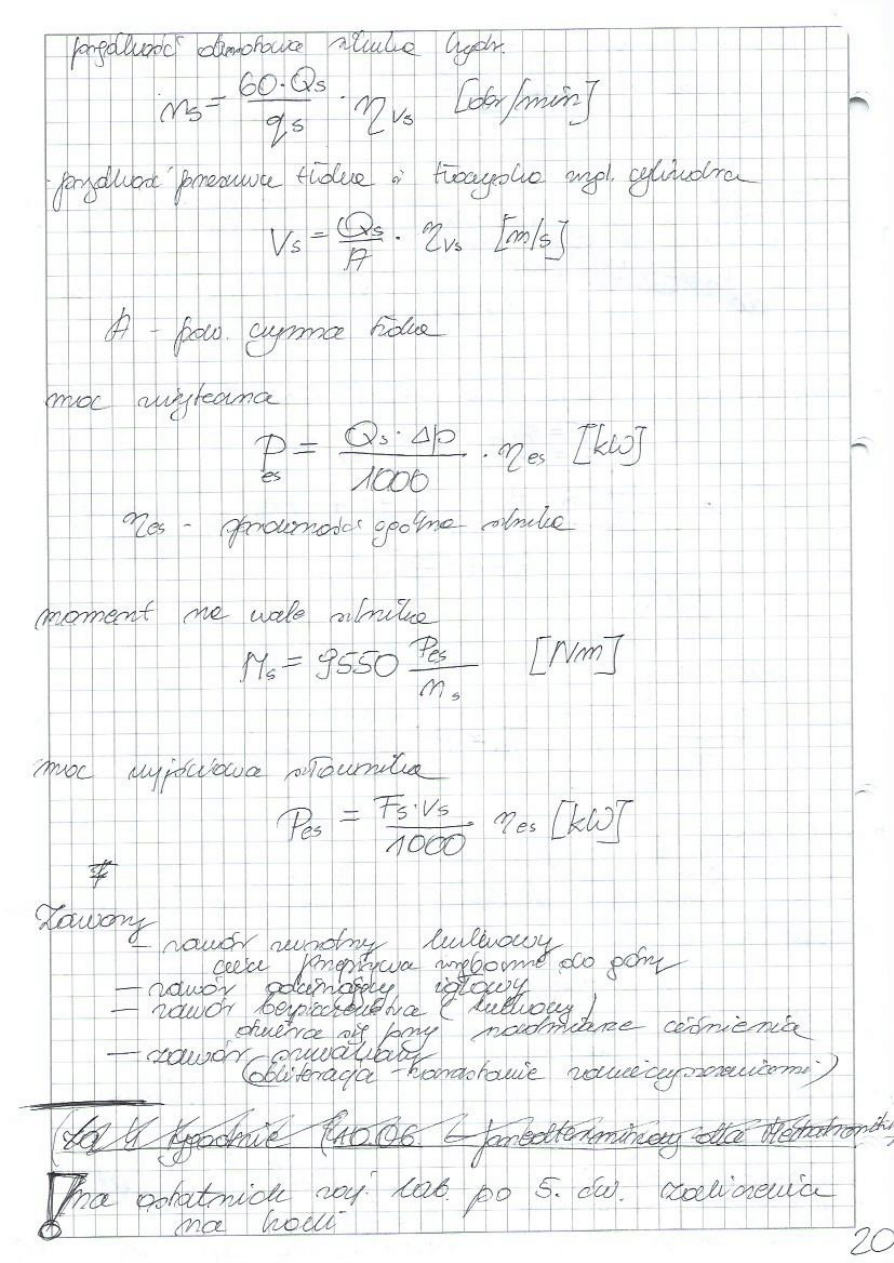 prędkość obrotowa silnika hydr.
n_s = 60·Q_s / q_s · η_vs [obr/min]
- prędkość przesuwu tłoka i tłoczyska wzgl. cylindra
V_s = Q_s / A · η_vs [m/s]
A - pow. czynna tłoka
moc użyteczna
P_es = Q_s · Δp / 1000 · η_es [kW]
η_es - sprawność ogólna silnika
moment na wale silnika
M_s = 9550 P_es / n_s [Nm]
moc wyjściowa siłownika
P_es = F_s·V_s / 1000 η_es [kW]
Zawory
- zawór zwrotny kulkowy
ciecz przepływa do góry
- zawór odcinający iglowy
- zawór bezpieczeństwa (kulkowy)
otwiera się przy nadmiarze ciśnienia
- zawór
(obliteracja - zarastanie zanieczyszczeniami)
(za 4 tygodnie (10.06. - przedterminowy dla Mechatroniki
! na ostatnich zaj. lab. po 5. ćw. zaliczenia
na koń
20